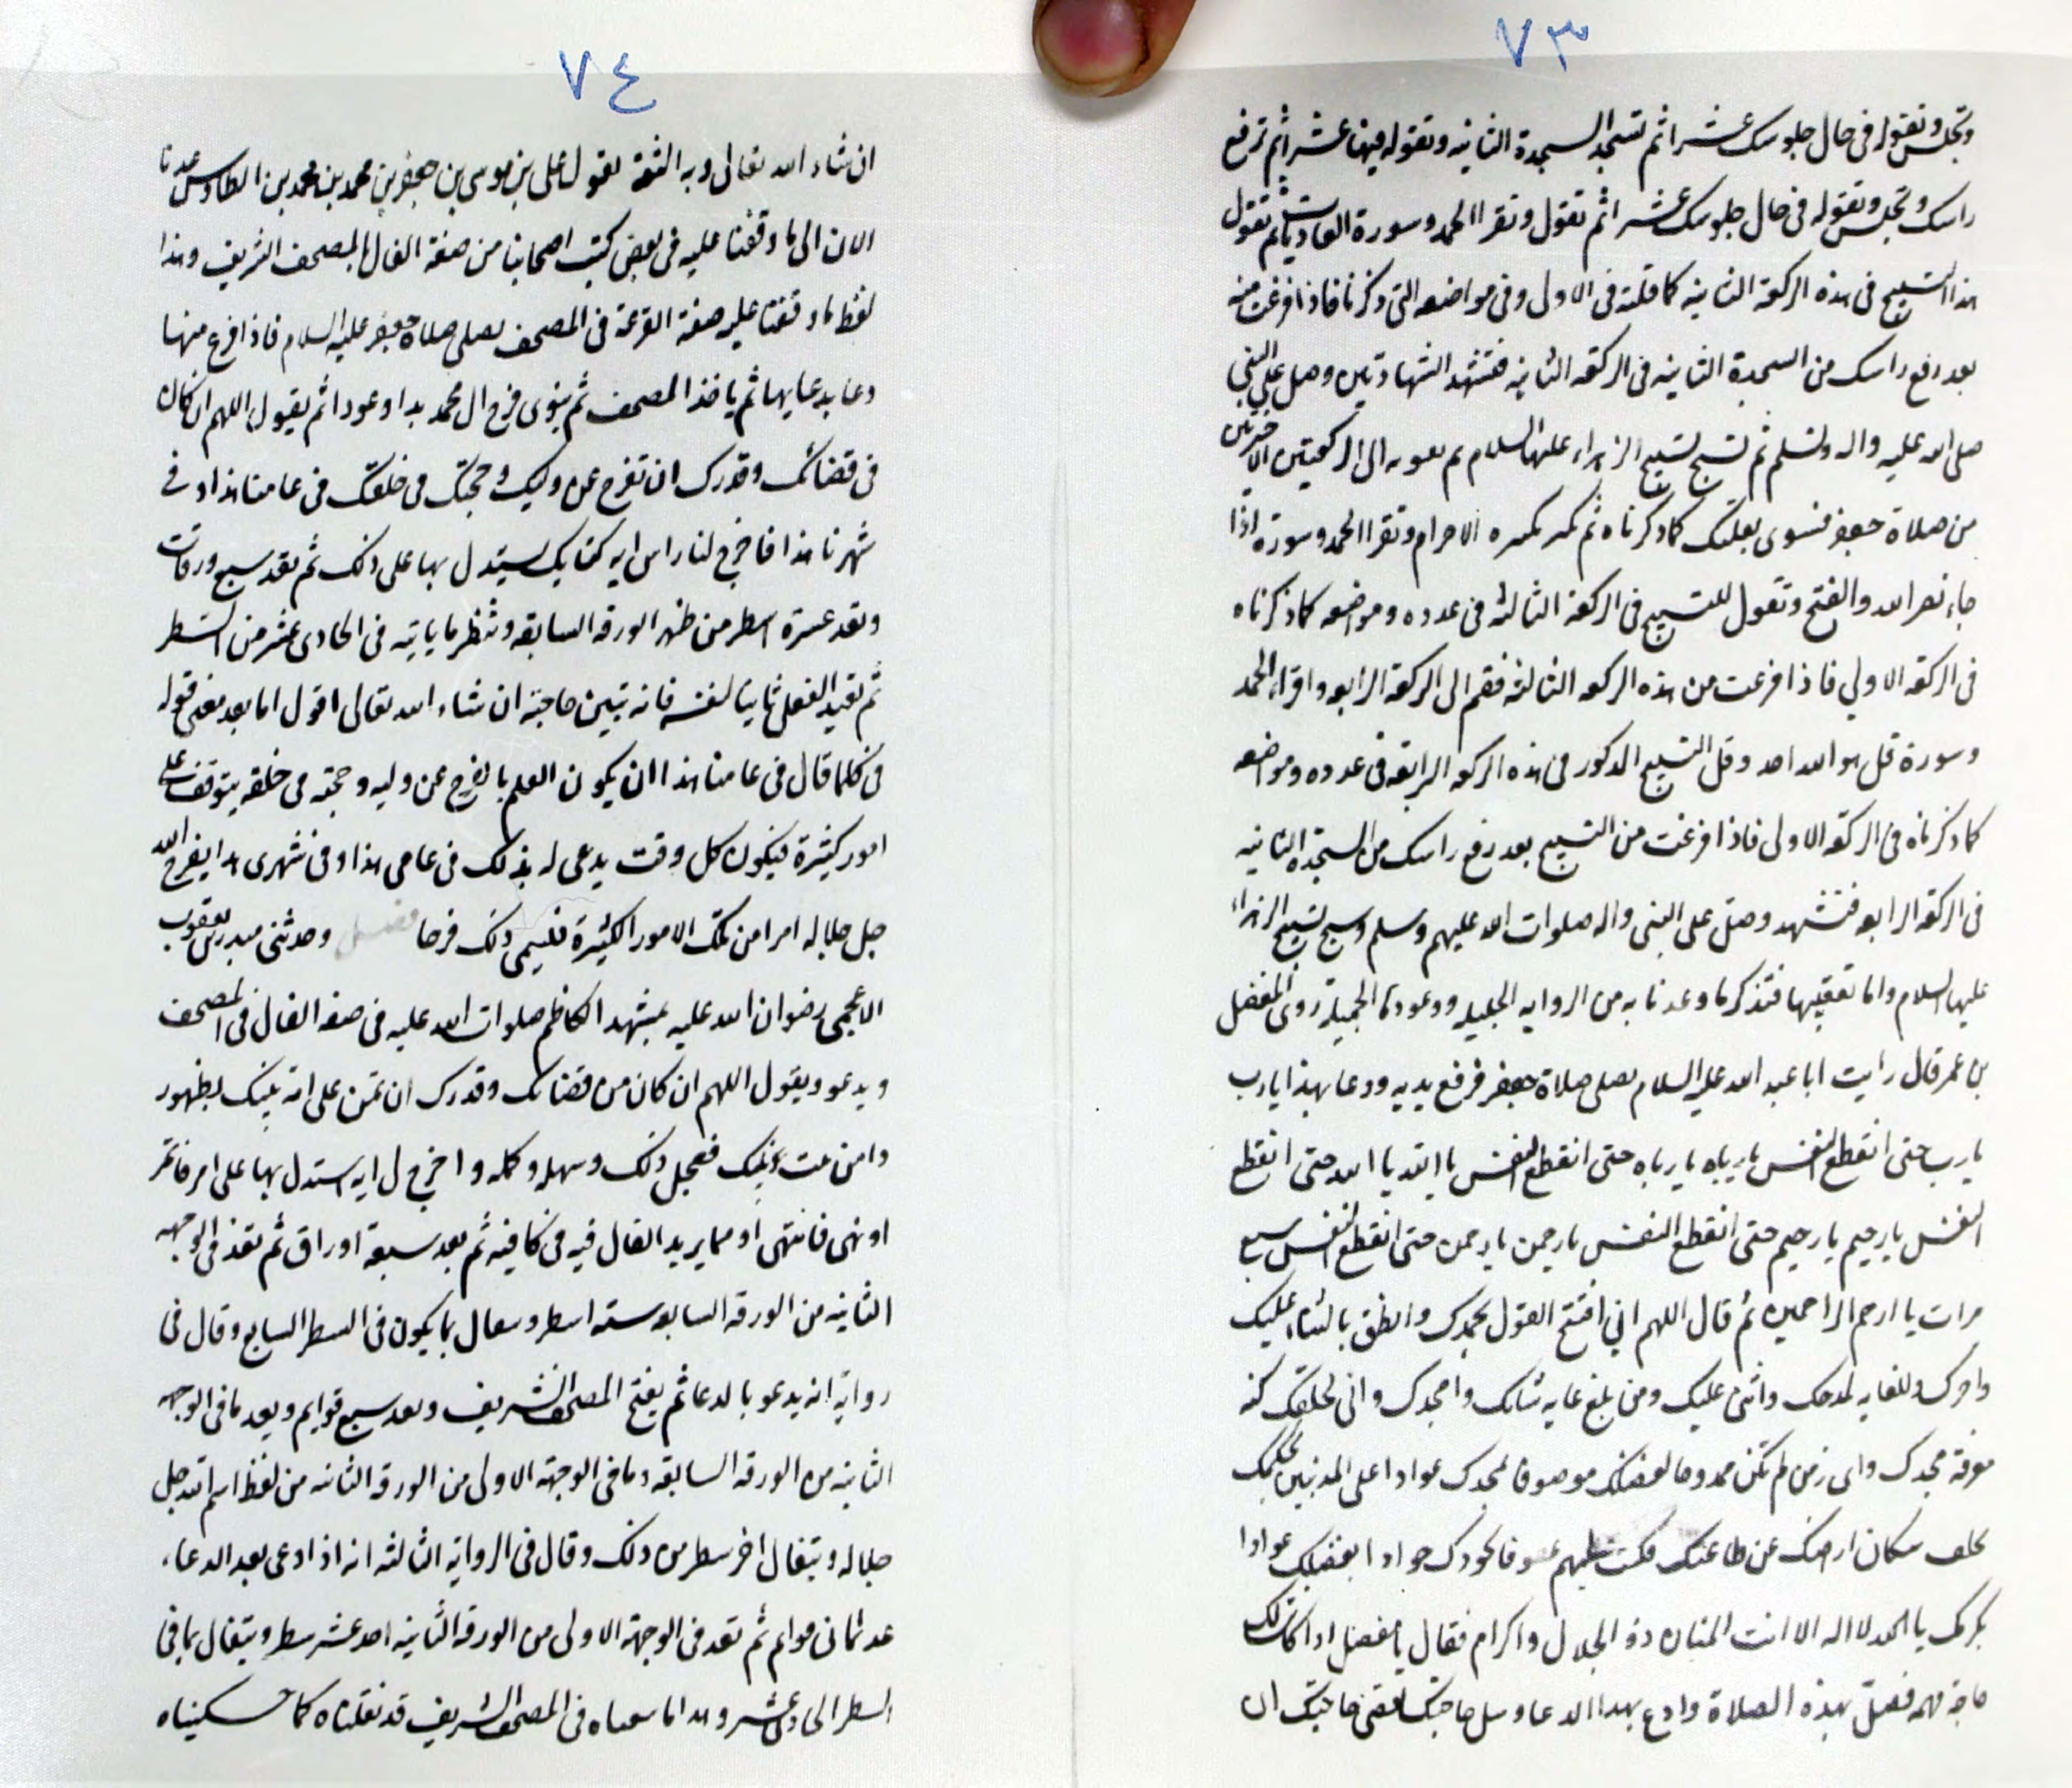 ٧٣
وتجلس وتقوله في حال جلوسك عشرا ثم تسجد السجدة الثانيه وتقوله فيها عشرا ثم ترفع
راسك وتجلس وتقوله في حال جلوسك عشرا ثم تقول وتقرا الحمد وسورة العاديات ثم تقول
هذا التسبيح في هذه الركعة الثانيه كما قلته في الاول وفي مواضعه التي ذكرنا فاذا فرغت منه
بعد رفع راسك من السجدة الثانيه في الركعه الثانيه فتشهد الشهادتين وصل على النبي
صلى الله عليه واله وتسلم ثم تسبح تسبيح الزهراء عليها السلام ثم تقوم الى الركعتين الاخيرتين
من صلاة جعفر فتنوي بقلبك كما ذكرناه ثم تكبر تكبيره الاحرام وتقرا الحمد وسورة اذا
جاء نصر الله والفتح وتقول التسبيح في الركعة الثالثه في عدده ومواضعه كما ذكرناه
في الركعه الاولي فاذا فرغت من هذه الركعه الثالثه فقم الى الركعة الرابعه واقراء الحمد
وسورة قل هو الله احد وقل التسبيح المذكور في هذه الركعه الرابعه في عدده ومواضعه
كما ذكرناه في الركعه الاولى فاذا فرغت من التسبيح بعد رفع راسك من السجده الثانيه
في الركعه الرابعه فتشهد وصل على النبي واله صلوات الله عليهم وسلم وسبح تسبيح الزهراء
عليها السلام واما تعقيبها فتذكر ما وعدنا به من الروايه الجليله ووعودها الجميله روى المفضل
بن عمر قال رايت ابا عبد الله عليه السلام يصلي صلاة جعفر فرفع يديه ودعا بهذا يا رب
يا رب حتى انقطع النفس يا رباه يا رباه حتى انقطع النفس يا الله يا الله حتى انقطع
النفس يا رحيم يا رحيم حتى انقطع النفس يا رحمن يا رحمن حتى انقطع النفس سبع
مرات يا ارحم الراحمين ثم قال اللهم اني افتتح القول بحمدك وانطق بالثناء عليك
وامجدك ولا غايه لمدحك واثنى عليك ومن يبلغ غايه ثنائك وامجدك واني لخلقك كنه
معرفة مجدك واى زمن لم تكن ممدوحا بفضلك موصوفا بمجدك عوادا على المذنبين بحلمك
تخلف سكان ارضك عن طاعتك فكنت عليهم عطوفا بجودك جوادا بفضلك عوادا
بكرمك يا احمد لا اله الا انت المنان ذو الجلال والاكرام فقال يا مفضل اذا كانت لك
حاجة مهمه فصل بهذه الصلاة وادع بهذا الدعا وسل حاجتك تقضى حاجتك ان
٧٤
ان شاء الله تعالى وبه الثقة يقول علي بن موسى بن جعفر بن محمد بن محمد بن الطاوس عدنا
الان الى ما وقفنا عليه في بعض كتب اصحابنا من صفة الفال بالمصحف الشريف وهذا
لفظ ما وقفنا عليه صفة القرعة في المصحف يصلي صلاة جعفر عليه السلام فاذا فرغ منها
دعا بدعايها ثم ياخذ المصحف ثم ينوى فرج ال محمد بدا وعودا ثم يقول اللهم ان كان
في قضائك وقدرك ان تفرج عن وليك وحجتك في خلقك في عامنا هذا او في
شهرنا هذا فاخرج لنا راس ايه كتابك يستدل بها على ذلك ثم يعد سبع ورقات
ويعد عشرة اسطر من ظهر الورقه السابعه وينظر ما ياتيه في الحادي عشر من السطر
ثم يعيد الفعل ثانيا لنفسه فانه تبين حاجته ان شاء الله تعالى اقول اما بعد معنى قوله
في كلما قال في عامنا هذا ان يكون العلم بالفرج عن وليه وحجته في خلقه يتوقف على
امور كثيرة فيكون كل وقت يدعى له بذلك في عامي هذا وفي شهرى هذا يفرح الله
جل جلاله امرا من تلك الامور الكثيرة فليسمي ذلك فرجا فصل وحدثني بدر بن يعقوب
الاعجمي رضوان الله عليه بمشهد الكاظم صلوات الله عليه في صفه الفال في المصحف
ويدعو ويقول اللهم ان كان من قضائك وقدرك ان تمن على امة نبيك بظهور
وابن بنت نبيك فعجل ذلك وسهله وكمله واخرج لي ايه استدل بها على امر فائتمر
او نهى فانتهى او مما يريد الفال فيه في كافيه ثم يعد سبعة اوراق ثم تعد في الوجهه
الثانيه من الورقه السابعه سته اسطر ويتفال بما يكون في السطر السابع وقال في
روايه انه يدعو بالدعا ثم يفتح المصحف الشريف ويعد سبع قوايم ويعد ما في الوجهه
الثانيه من الورقه السابعه وما في الوجهة الاولى من الورقه الثامنه من لفظ اسم الله جل
جلاله ويتفال اخر سطر من ذلك وقال في الروايه الثالثه انه اذا دعى بعد الدعاء
عد ثماني قوايم ثم تعد في الوجهة الاولى من الورقه الثانيه احد عشر سطر ويتفال بما في
السطر الحادي عشر وهذا ما سمعناه في المصحف الشريف قد نقلناه كما حكيناه